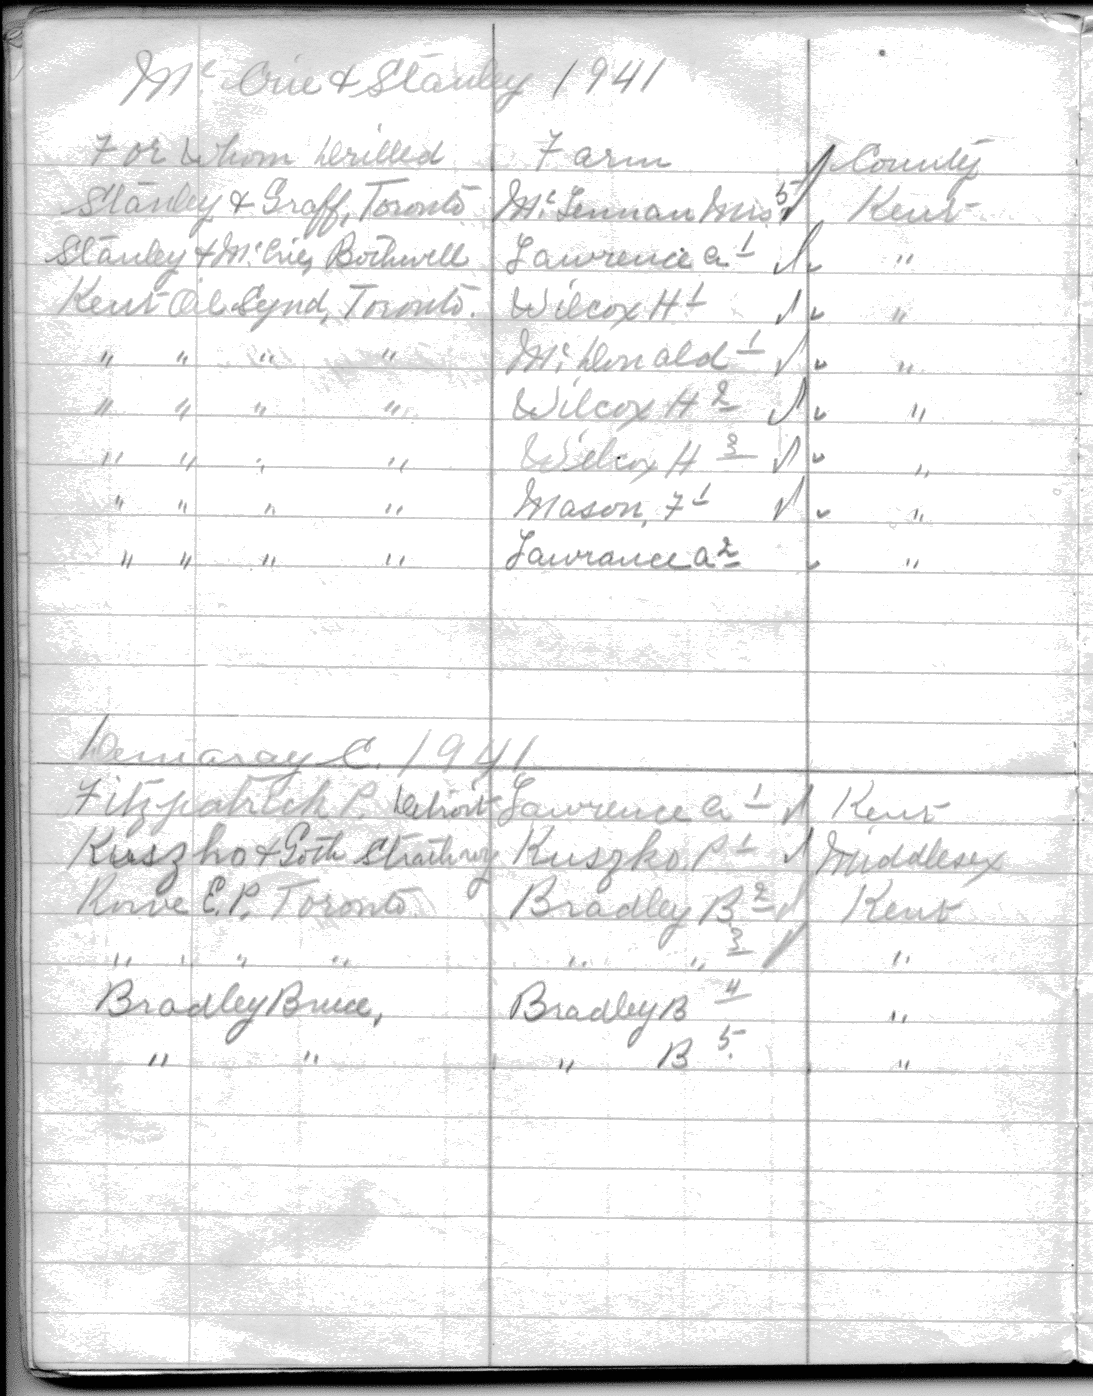 Mc. Crie & Stanley 1941
For Whom Drilled Farm County
Stanley & Graff, Toronto Mc. Lennan Mrs. 5 ✓ Kent
Stanley & Mc. Crie, Bothwell Lawrence A 1 ✓ ✓ "
Kent Oil Synd, Toronto. Wilcox H 1 ✓ ✓ "
" " " " Mc. Donald 1 ✓ ✓ "
" " " " Wilcox H 2 ✓ ✓ "
" " " " Wilcox H 3 ✓ ✓ "
" " " " Mason, F 1 ✓ ✓ "
" " " " Lawrance A 2 ✓ "
Demaray C. 1941
Fitzpatrick P. Detroit Lawrence A 1 ✓ Kent
Kuszko & Goth Strathroy Kuszko. P 1 ✓ Middlesex
Rowe E. P. Toronto. Bradley B 2 ✓ Kent
" " " " " " 3 ✓ "
Bradley Bruce, Bradley B 4 "
" " " B 5. "